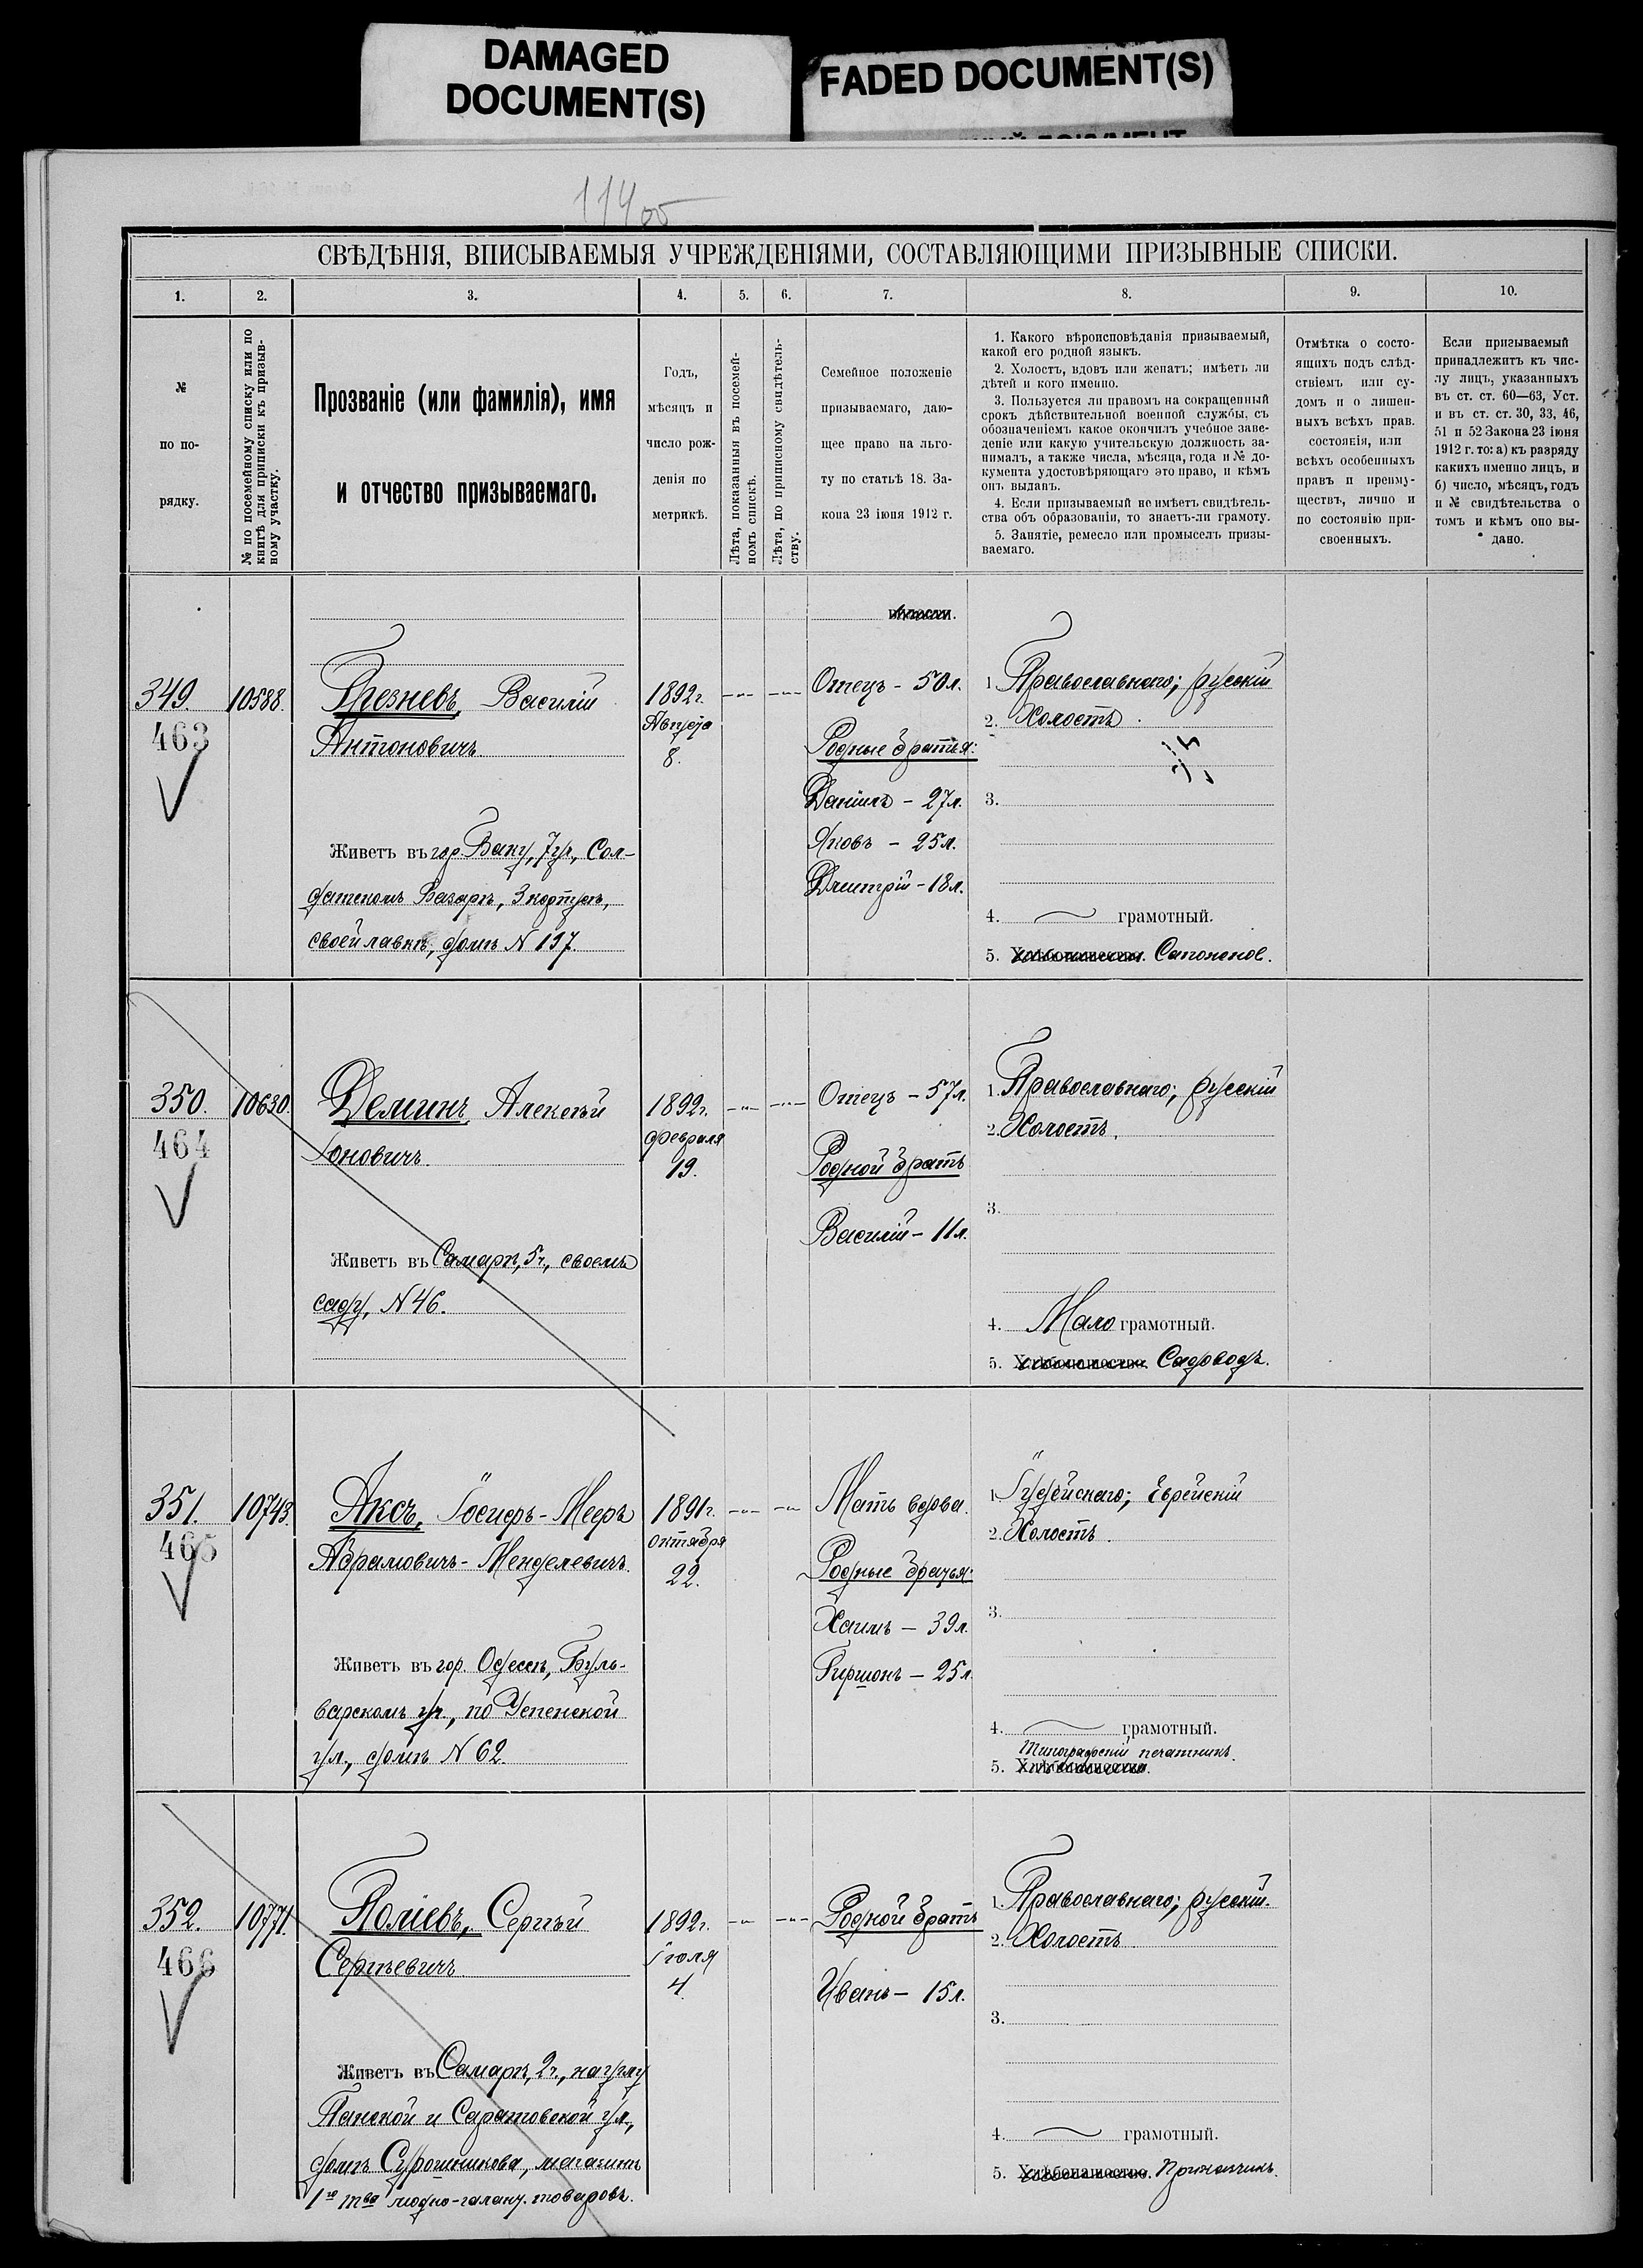 DAMAGED
DOCUMENT(S)
FADED DOCUMENT(S)
114 об
СВѢДѢНІЯ, ВПИСЫВАЕМЫЯ УЧРЕЖДЕНІЯМИ, СОСТАВЛЯЮЩИМИ ПРИЗЫВНЫЕ СПИСКИ.
1. 2. 3. 4. 5. 6. 7. 8. 9. 10.
№
по по-
рядку.
№ по посемейному списку или по
книгѣ для приписки къ призыв-
ному участку.
Прозваніе (или фамилія), имя
и отчество призываемаго.
Годъ,
мѣсяцъ и
число рож-
денія по
метрикѣ.
Лѣта, показанныя въ посемей-
номъ спискѣ.
Лѣта, по приписному свидѣтель-
ству.
Семейное положеніе
призываемаго, даю-
щее право на льго-
ту по статьѣ 18. За-
кона 23 іюня 1912 г.
1. Какого вѣроисповѣданія призываемый,
какой его родной языкъ.
2. Холостъ, вдовъ или женатъ; имѣетъ ли
дѣтей и кого именно.
3. Пользуется ли правомъ на сокращенный
срокъ дѣйствительной военной службы, съ
обозначеніемъ какое окончилъ учебное заве-
деніе или какую учительскую должность за-
нималъ, а также числа, мѣсяца, года и № до-
кумента удостовѣряющаго это право, и кѣмъ
онъ выданъ.
4. Если призываемый не имѣетъ свидѣтель-
ства объ образованіи, то знаетъ-ли грамоту.
5. Занятіе, ремесло или промыселъ призы-
ваемаго.
Отмѣтка о состо-
ящихъ подъ слѣд-
ствіемъ или су-
домъ и о лишен-
ныхъ всѣхъ прав.
состоянія, или
всѣхъ особенныхъ
правъ и преиму-
ществъ, лично и
по состоянію при-
своенныхъ.
Если призываемый
принадлежитъ къ чис-
лу лицъ, указанныхъ
въ ст. ст. 60—63, Уст.
и въ ст. ст. 30, 33, 46,
51 и 52 Закона 23 іюня
1912 г. то: а) къ разряду
какихъ именно лицъ, и
б) число, мѣсяцъ, годъ
и № свидѣтельства о
томъ и кѣмъ оно вы-
дано.
349.
463
10588.
Грезневъ, Василій
Антоновичъ
Живетъ въ гор Баку, 7 уч, Сол-
датскомъ Базарѣ,
своей лавкѣ, домъ N 197.
1892г.
Августа
8.
Отецъ - 50 л.
Родные братья:
Даніилъ - 27 л.
Яковъ - 25 л.
Дмитрій - 18 л.
1 Православнаго; русскій
2. Холостъ.
3.
4. грамотный.
5. Хлѣбопашество. Сапожное.
350.
464
10630.
Деминъ, Алексѣй
Іоновичъ.
Живетъ въ Самарѣ, 5 ч., своемъ
саду, N 46.
1892г.
февраля
19.
Отецъ - 57 л.
Родной братъ
Василій - 11 л.
1. Православнаго; русскій
2. Холостъ.
3.
4. Мало грамотный.
5. Хлѣбопашество. Садоводъ.
351.
465
10743.
Аксъ, Іосифъ-Мееръ
Абрамовичъ-Менделевичъ.
Живетъ въ гор. Одессѣ, Буль-
варскомъ уч., по Успенской
ул., домъ N 62.
1891г.
октября
22.
Мать вдова.
Родные братья:
Хаимъ - 39 л.
Гиршонъ - 25 л.
1 Іудейскаго; Еврейскій
2. Холостъ.
3.
4. грамотный.
Типографскій печатникъ.
5. Хлѣбопашество.
352.
466
10771.
Поліевъ, Сергѣй
Сергѣевичъ
Живетъ въ Самарѣ, 2 ч., на углу
Панской и Саратовской ул.,
домъ Сурошникова, магазинъ
1го тва модно-галант. товаровъ.
1892г.
Іюля
4.
Родной братъ
Иванъ - 15 л.
1. Православнаго; русскій.
2. Холостъ
3.
4. грамотный.
5. Хлѣбопашество. Приказчикъ.